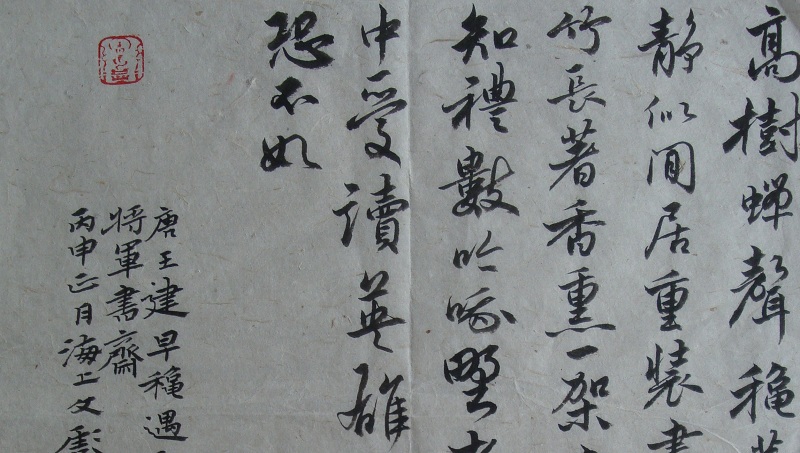 高樹蟬聲秋
静似閒居重裝書
竹長著香熏一架
知禮數吟咏野
中愛讀英雄
恐不如
唐王建早秋遇
将軍書齋
丙申正月海上文